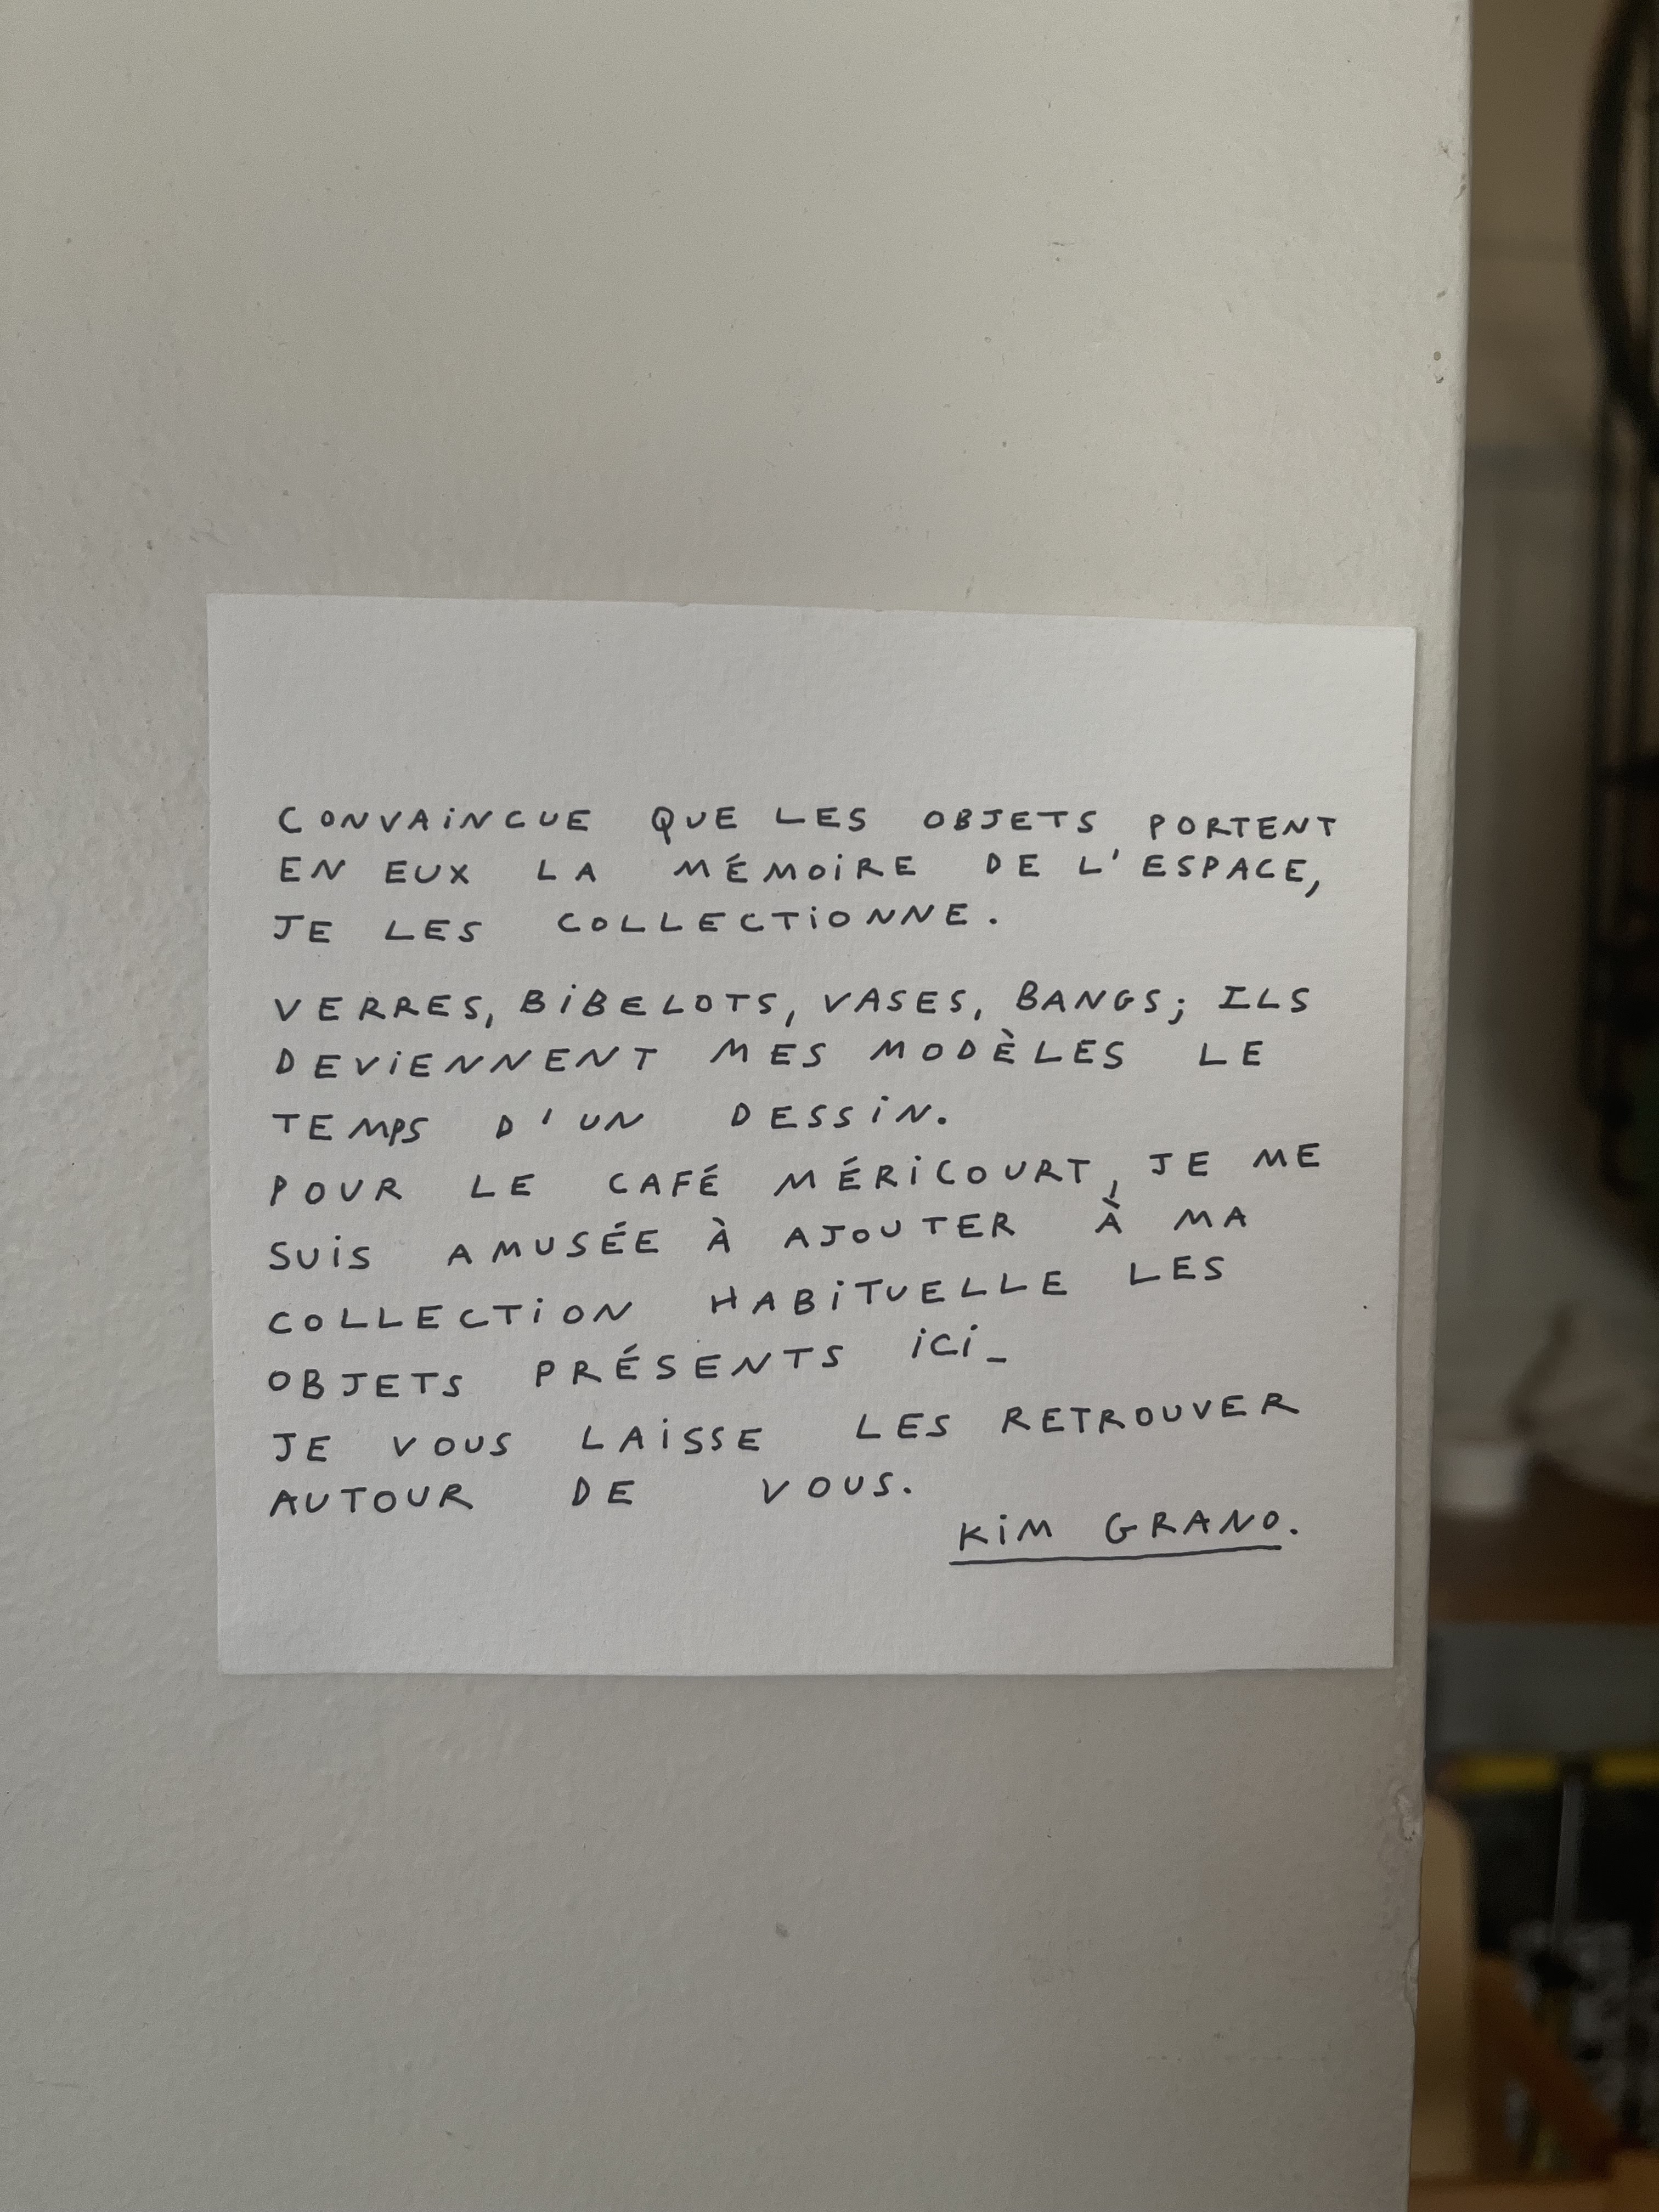 CONVAiNCUE QUE LES OBJETS PORTENT
EN EUX LA MÉMOiRE DE L'ESPACE,
JE LES COLLECTiONNE.
VERRES, BiBELOTS, VASES, BANGS; ILS
DEViENNENT MES MODÈLES LE
TEMPS D'UN DESSiN.
POUR LE CAFÉ MÉRiCOURT, JE ME
SUiS AMUSÉE À AJOUTER À MA
COLLECTiON HABiTUELLE LES
OBJETS PRÉSENTS iCi_
JE VOUS LAiSSE LES RETROUVER
AUTOUR DE VOUS.
KiM GRANO.